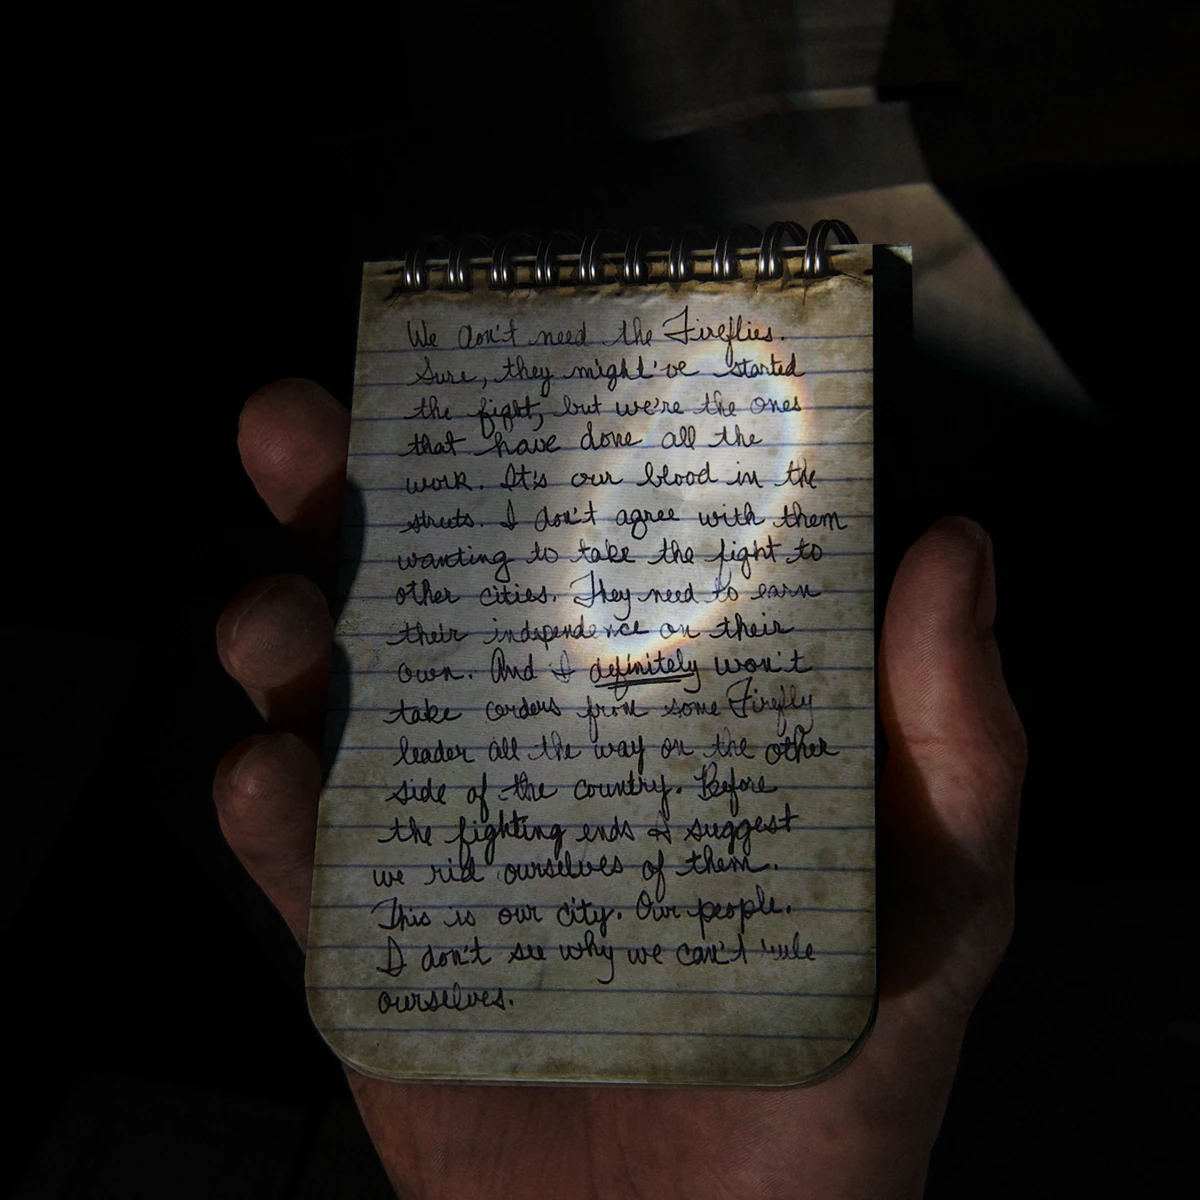 We don't need the Fireflies.
Sure, they might've started
the fight, but we're the ones
that have done all the
work. It's our blood in the
streets. I don't agree with them
wanting to take the fight to
other cities. They need to earn
their independence on their
own. And I definitely won't
take orders from some Firefly
leader all the way on the other
side of the country. Before
the fighting ends I suggest
we rid ourselves of them.
This is our city. Our people.
I don't see why we can't rule
ourselves.